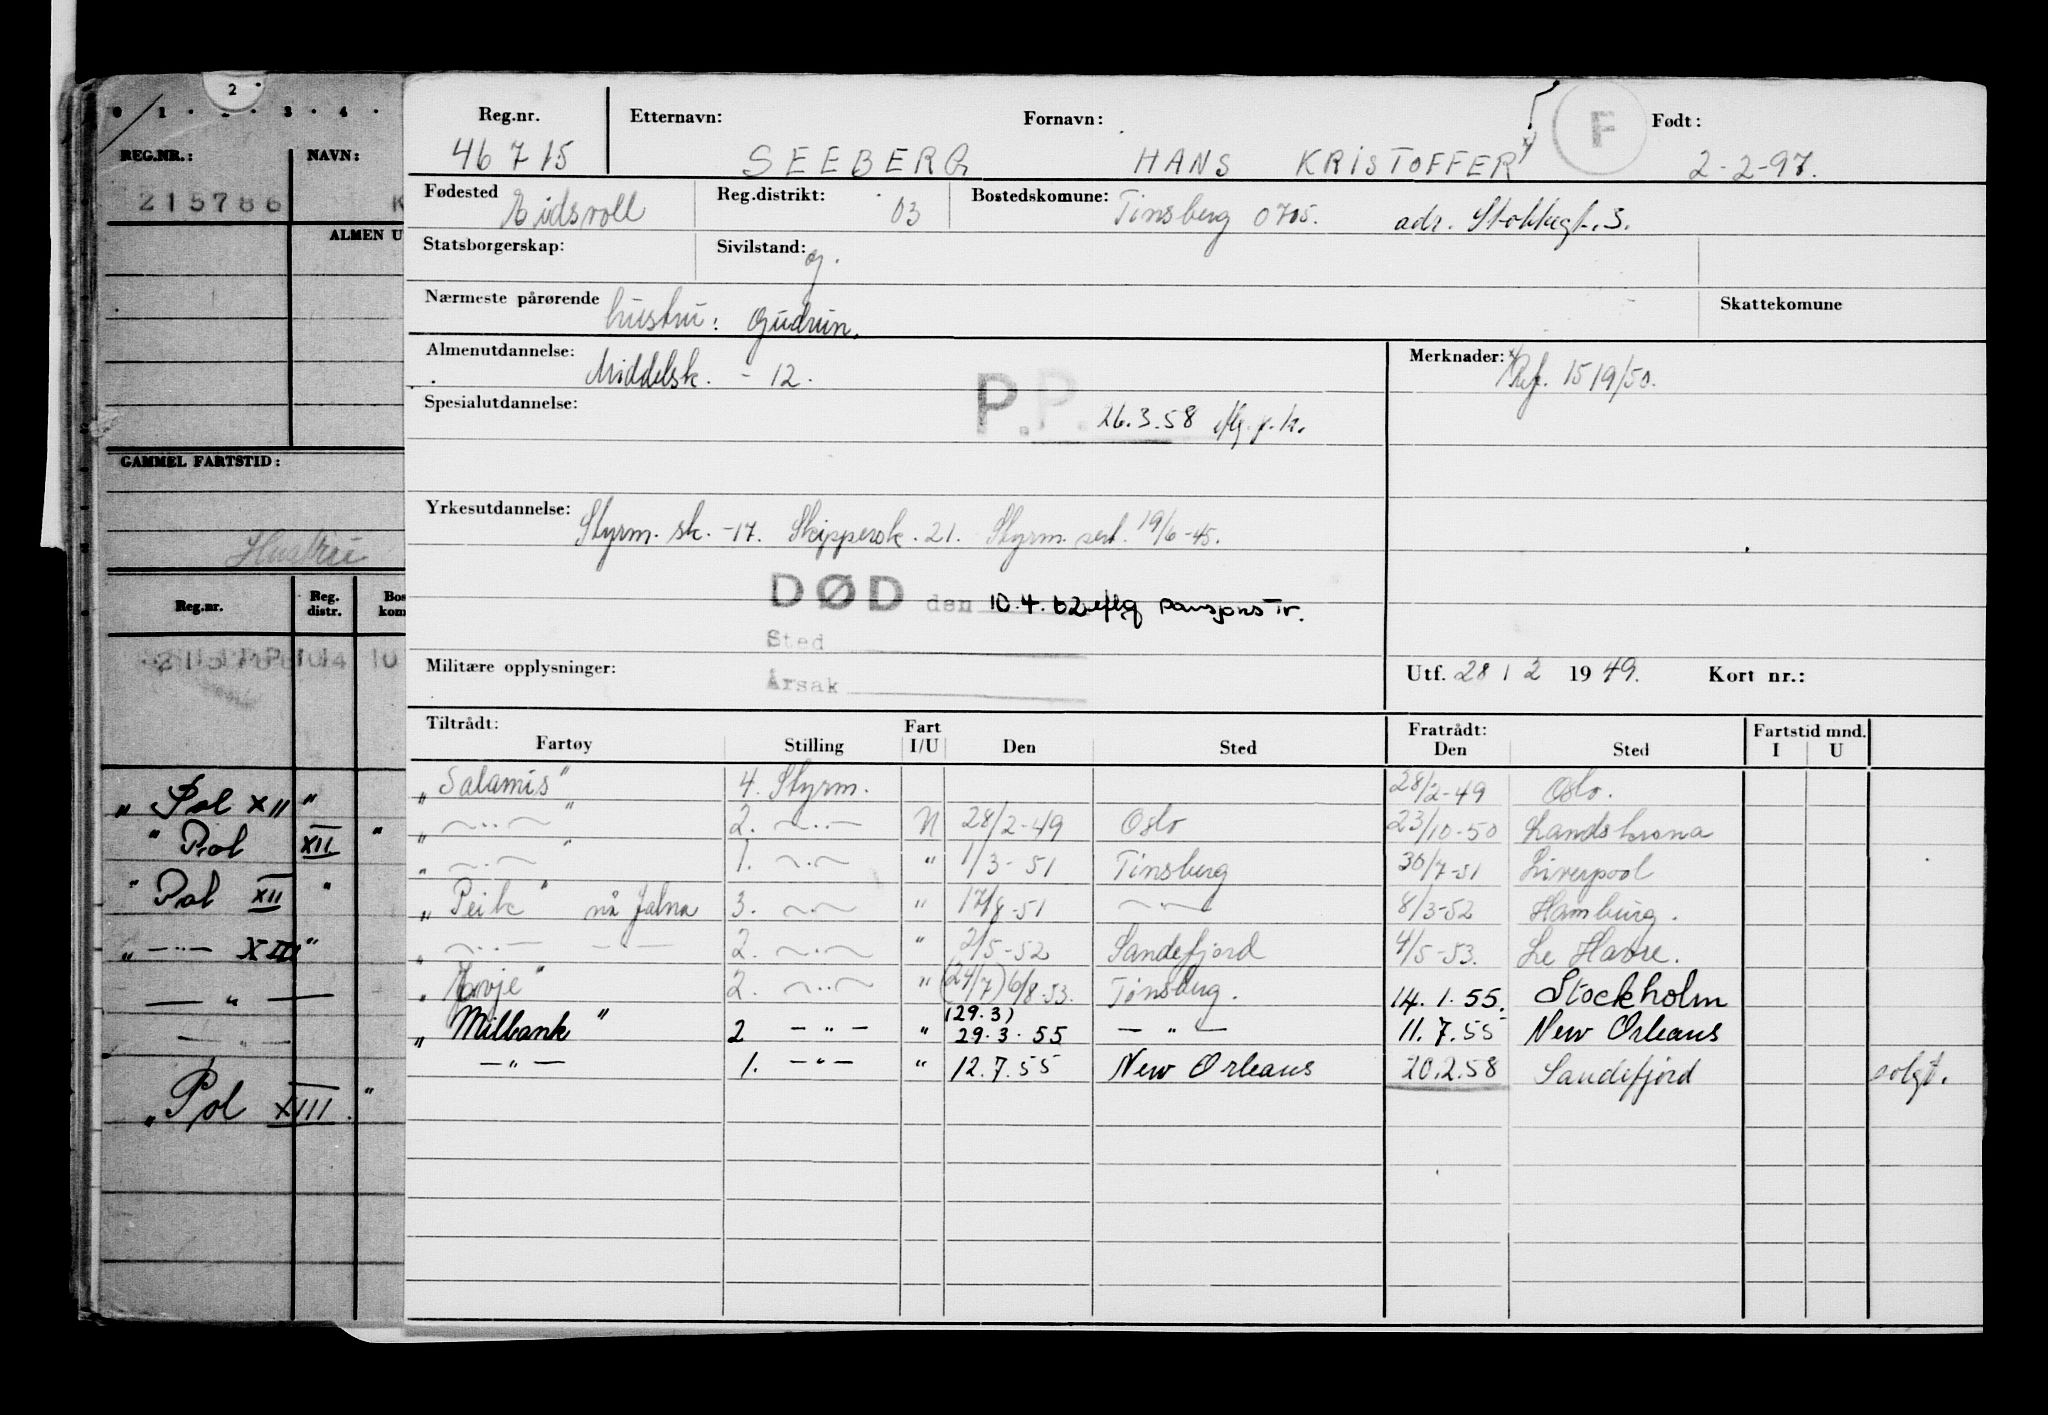 2
0 1 2 3 4
REG.NR.: NAVN:
215786 K
ALMEN U
GAMMEL FARTSTID:
Hustru
Reg.nr. Reg. distr. Bos kom
„ Pol XII "
" Pol XII "
" Pol XII "
„ —"— XIII "
— " —
— " —
„ Pol XIII. "
Reg.nr. Etternavn: Fornavn: F Født:
46715 SEEBERG HANS KRISTOFFER x) 2-2-97.
Fødested Eidsvoll Reg.distrikt: 03 Bostedskomune: Tønsberg 0705. adr. Stokkegt. 3.
Statsborgerskap: Sivilstand: g.
Nærmeste pårørende hustru: Gudrun. Skattekomune
Almenutdannelse: Middelsk. - 12. Merknader: x) Ref. 1519/50.
Spesialutdannelse: P.P. 26.3.58 iflg. p.k.
Yrkesutdannelse: Styrm. sk. -17. Skippersk. 21. Styrm. sert. 19/6-45.
DØD den 10.4.62 iflg pensjonstr.
Sted
Militære opplysninger: Utf. 28 / 2 1949. Kort nr.:
Årsak
Tiltrådt: Fart Fratrådt: Fartstid mnd.
Fartøy Stilling I/U Den Sted Den Sted I U
„ Salamis" 4. Styrm. 28/2-49 Oslo.
„ —"— " 2. —"— U 28/2-49 Oslo 23/10-50 Landskrona
„ —"— " 1. —"— " 1/3-51 Tønsberg 30/7-51 Liverpool
„ Peik" nå Jalna 3. —"— " 17/8-51 —"— 8/3-52 Hamburg.
„ —"— —"— 2. —"— " 2/5-52 Sandefjord 4/5-53. Le Havre.
„ Høvje" 2. —"— " (24/7) 6/8-53. Tønsberg. 14.1.55. Stockholm
(29.3)
„ Milbank " 2 —"— " 29.3.55 —"— 11.7.55 New Orleans
—"— 1. —"— " 12.7.55 New Orleans 20.2.58 Sandefjord solgt.